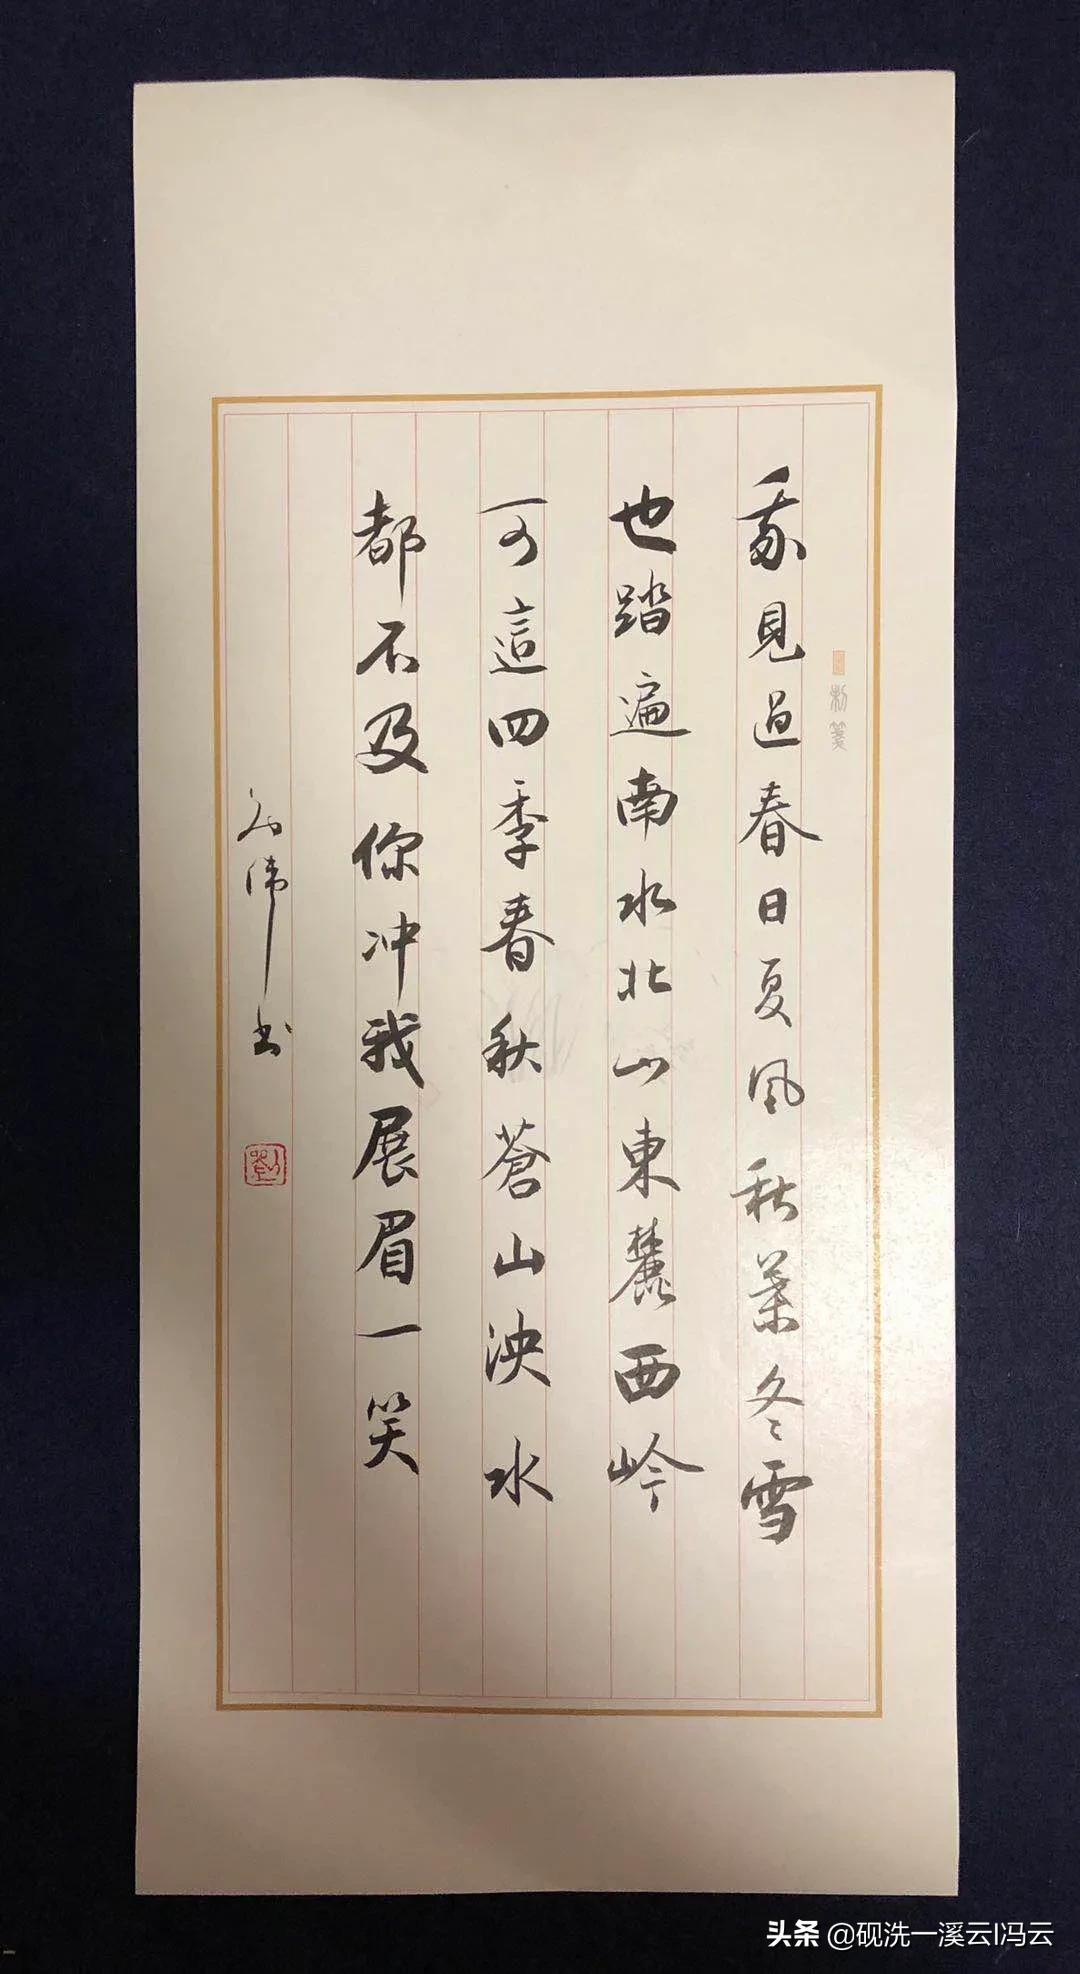 我見過春日夏風秋葉冬雪
也踏遍南水北山東麓西岭
可這四季春秋蒼山泱水
都不及你冲我展眉一笑
伟书
劉
头条 @砚洗一溪云I冯云